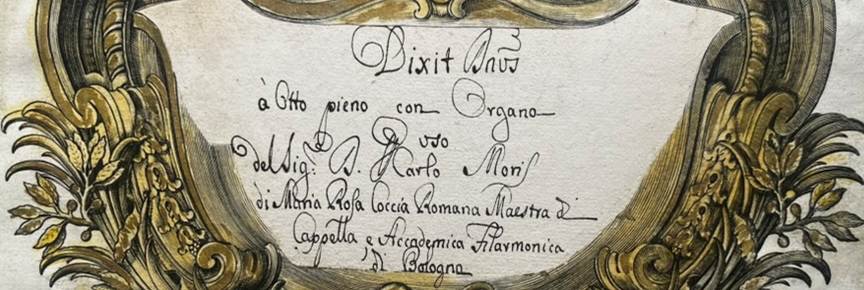 Dixit Dnus
à Otto pieno con Organo
P uso
del Sig.r D. Karlo Moris
di Maria Rosa Coccia Romana Maestra di
Cappella e Accademica Filarmonica
di Bologna